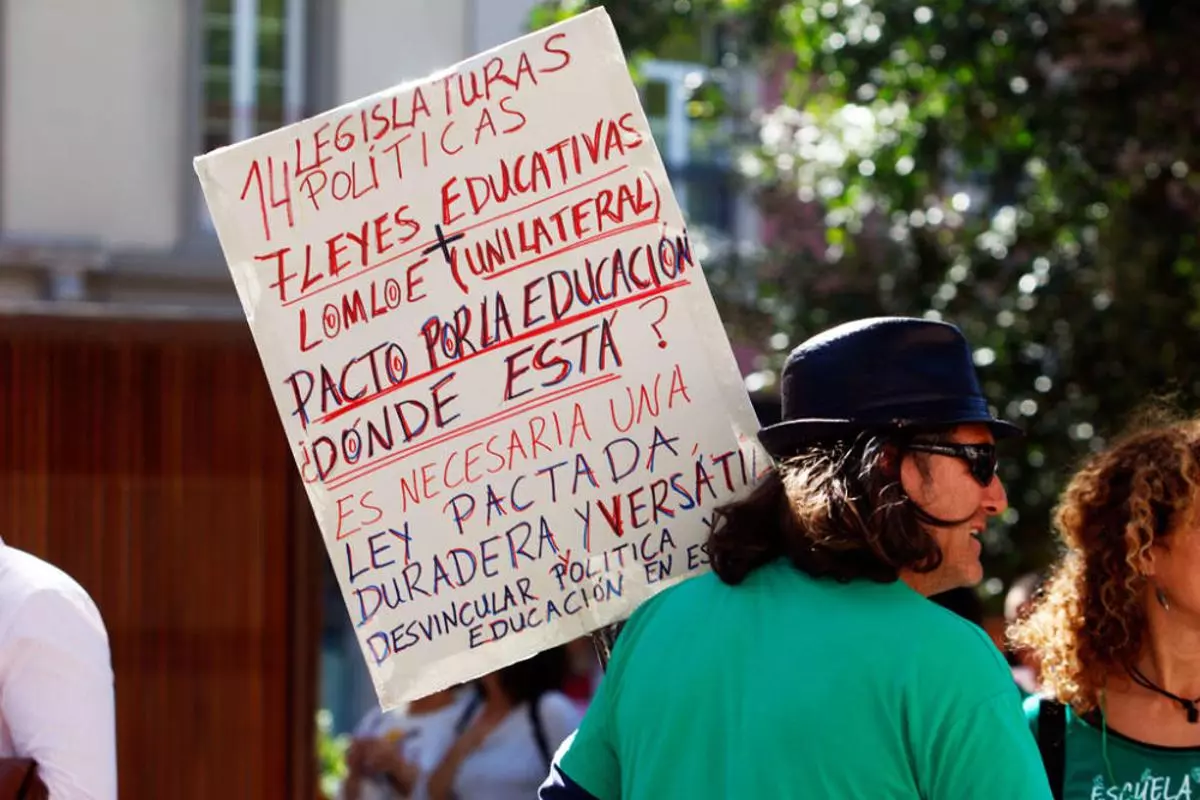 14 LEGISLATURAS
POLÍTICAS
7 LEYES EDUCATIVAS
+
LOMLOE (UNILATERAL)
PACTO POR LA EDUCACIÓN
¿DÓNDE ESTÁ?
ES NECESARIA UNA
LEY PACTADA,
DURADERA Y VERSÁTIL
DESVINCULAR POLITICA Y
EDUCACIÓN EN
ESCUELA